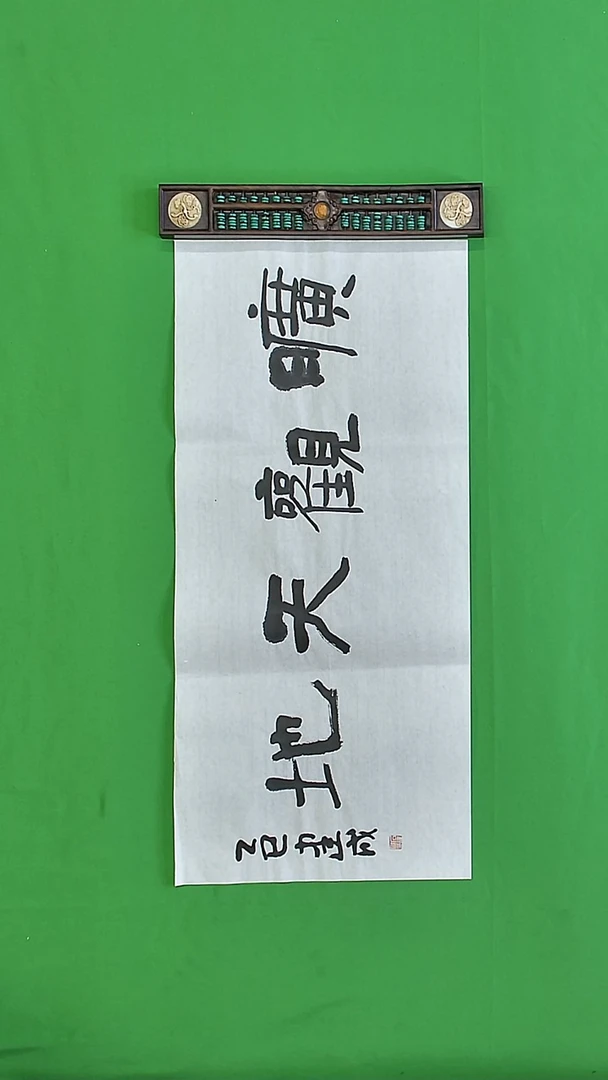 曠觀天地
乙巳 建成